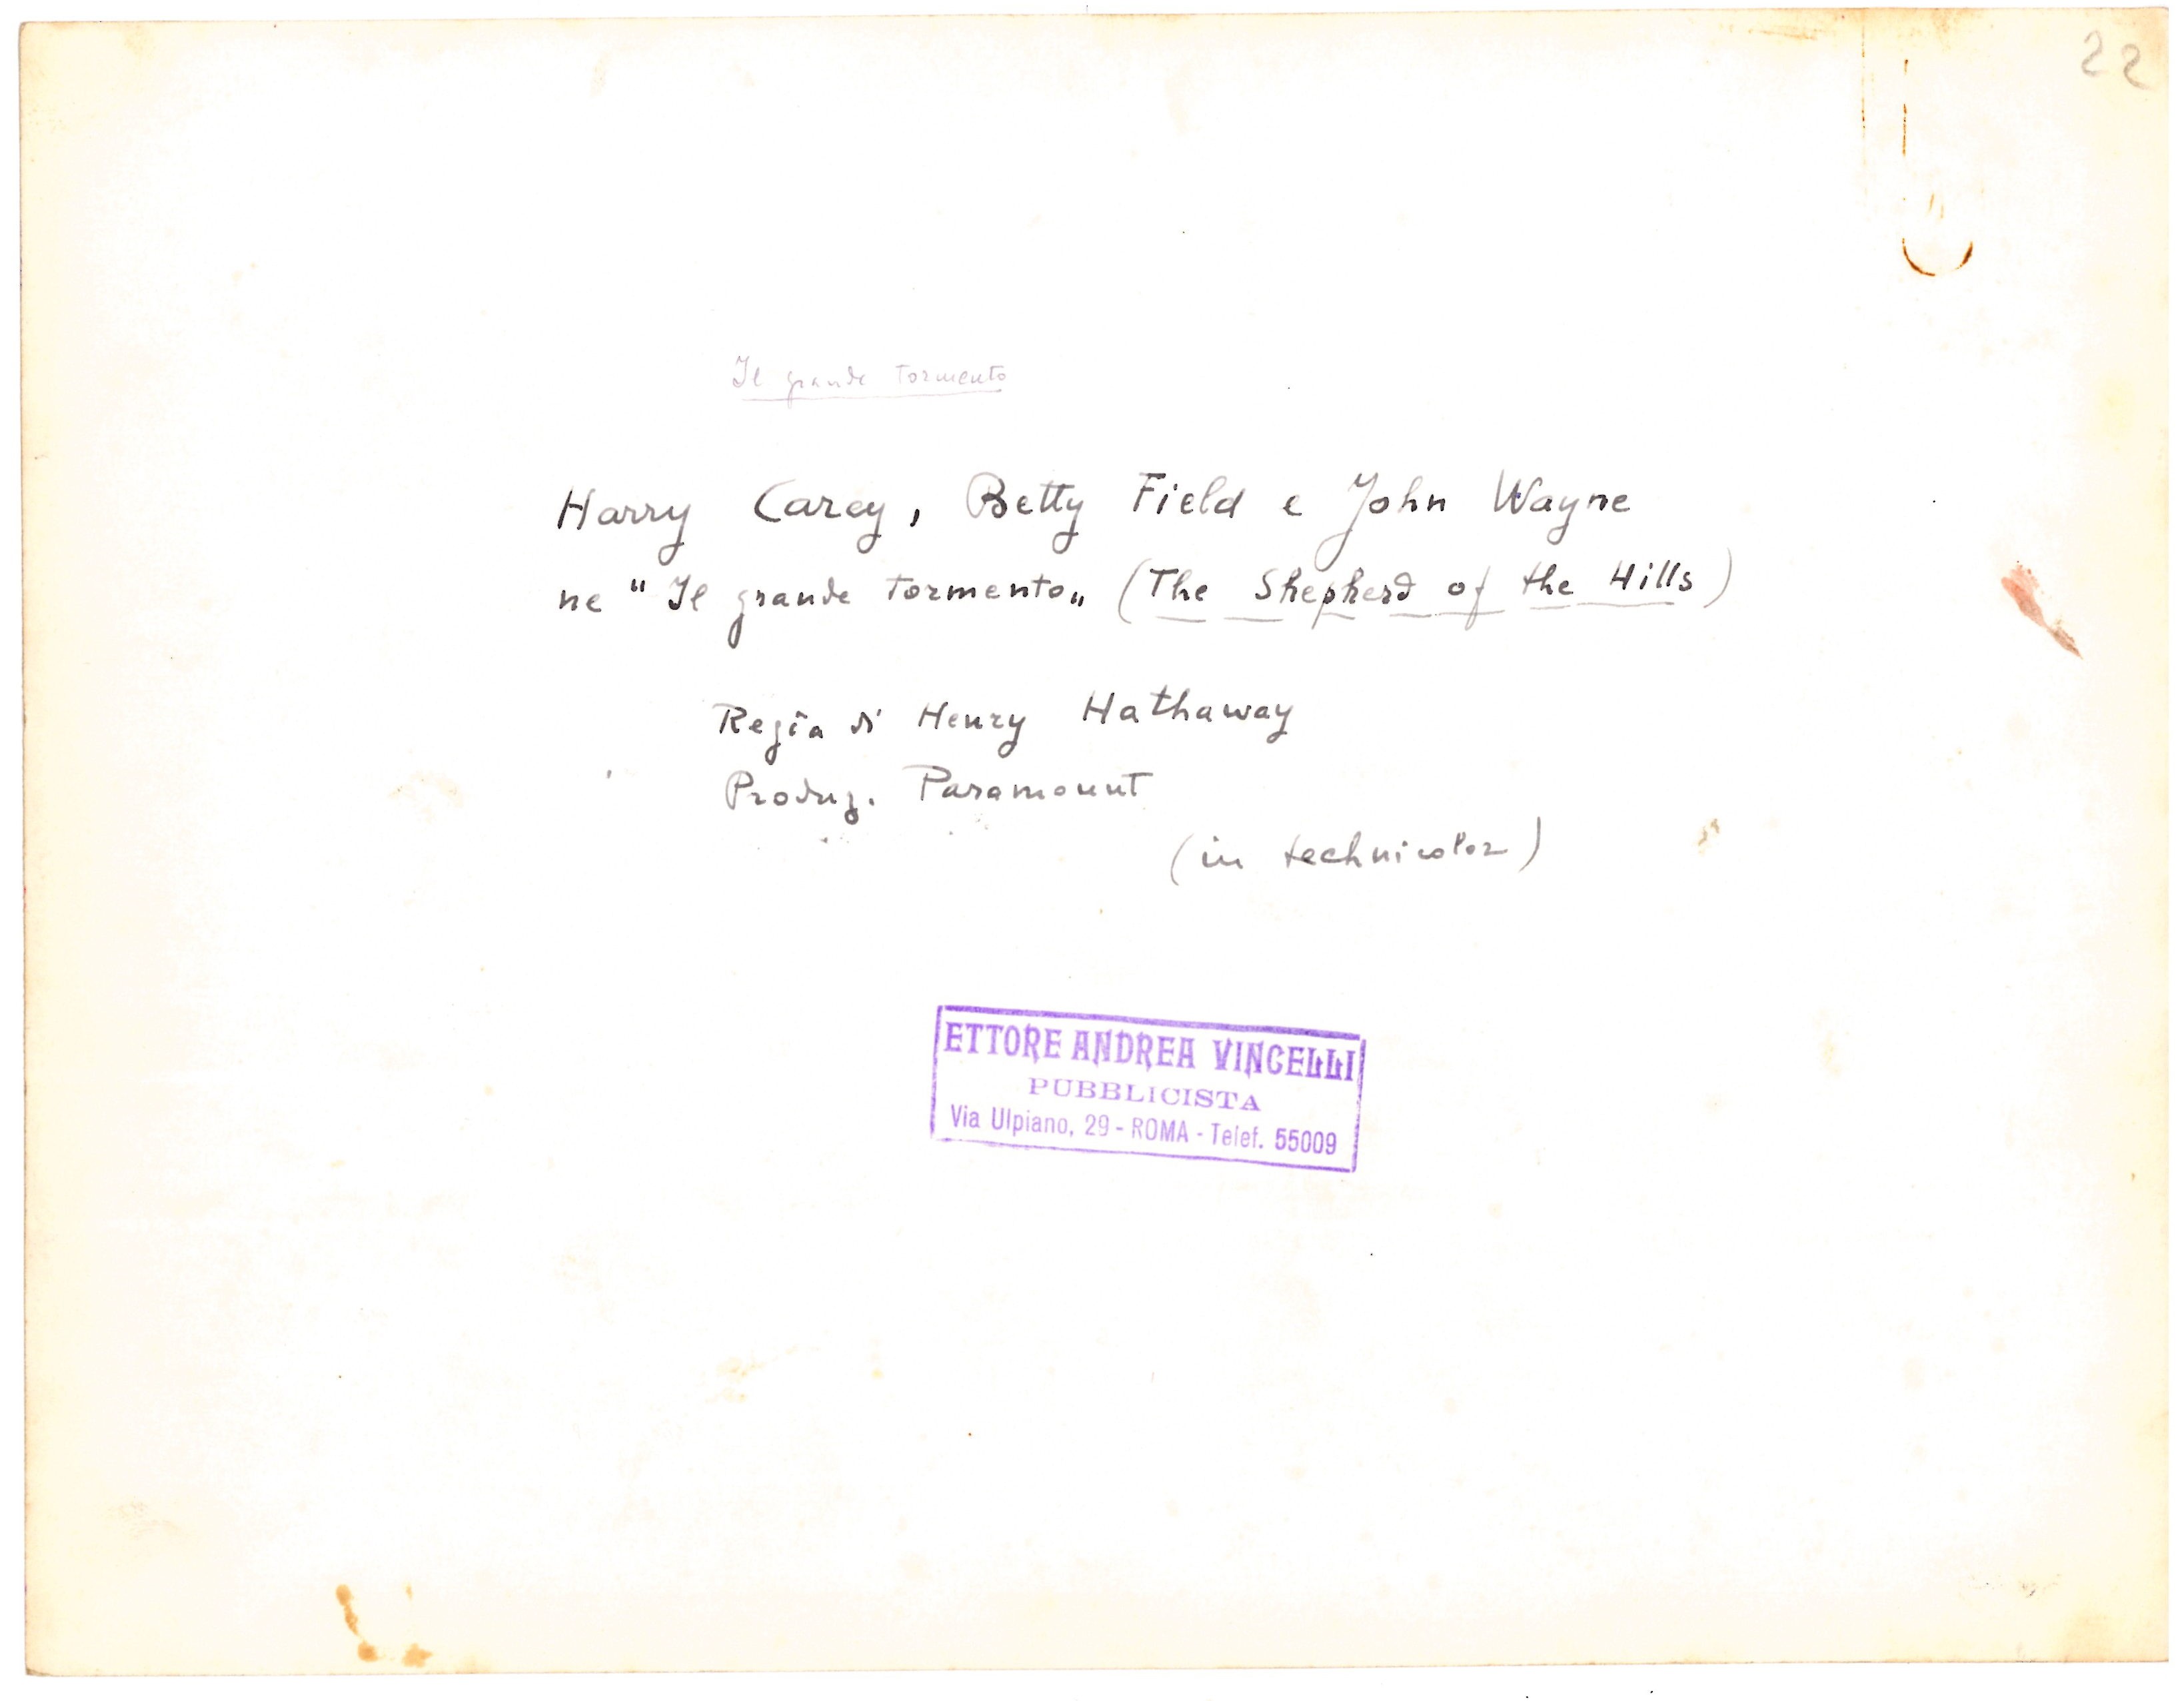 22
Il grande tormento
Harry Carey, Betty Field e John Wayne
ne "Il grande tormento„ (The Shepherd of the Hills)
Regia di Henry Hathaway
Produz. Paramount
(in technicolor)
ETTORE ANDREA VINCELLI
PUBBLICISTA
Via Ulpiano, 29 - ROMA - Telef. 55009